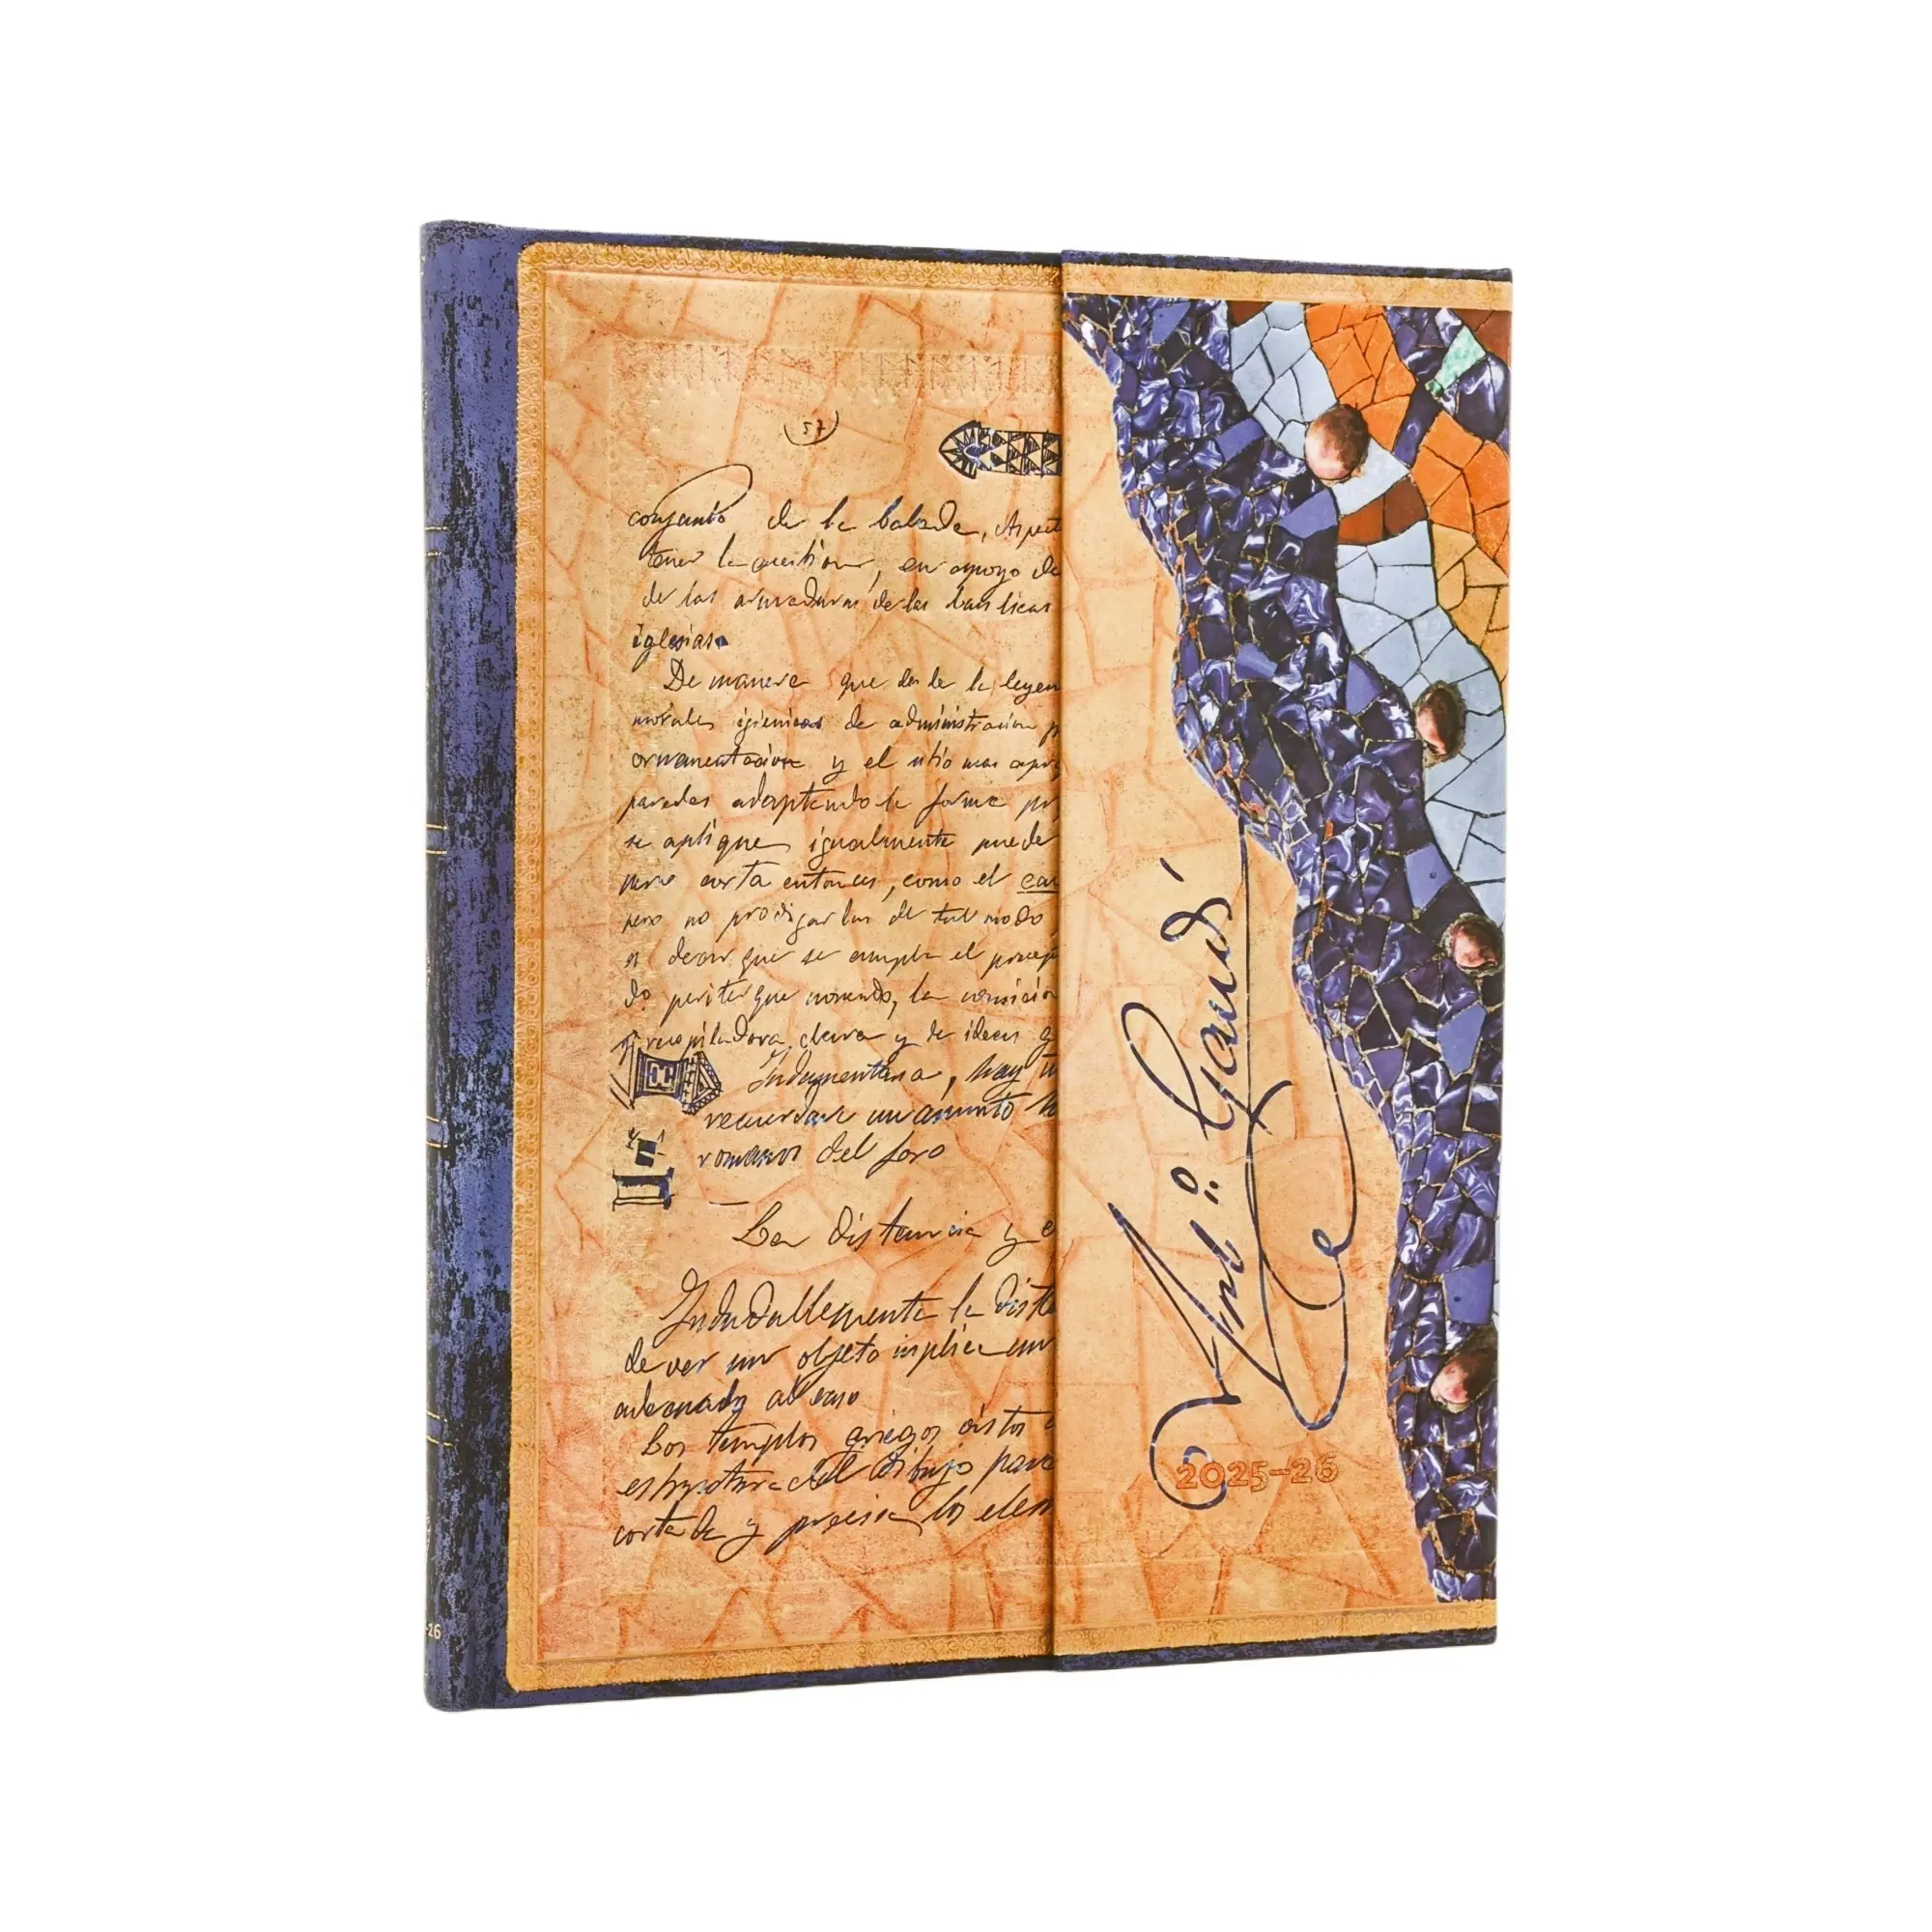 57
conjunto de la balada, Aspect
tener la cuestion, en apoyo de
de las armaduras de las basilicas
iglesias
De manera que desde la leyen
morales igienicos de administracion p
ornamentacion y el sitio mas apro
paredes adaptando la forma pr
se aplique igualmente puede
pero corta entonces, como el
pero no prodigarlas de tal modo
decor que se cumpla el precep
la
recopiladora, clara y de ideas
Indumentaria, hay
recuerdase un asunto
romanos del foro
La distancia y e
Indudablemente la dist
de ver un objeto implica un
adecuada al caso
Los templos griegos
estructura del dibujo para
cortada y precisa los elem
Antº. Gaudí
2025-26
-26